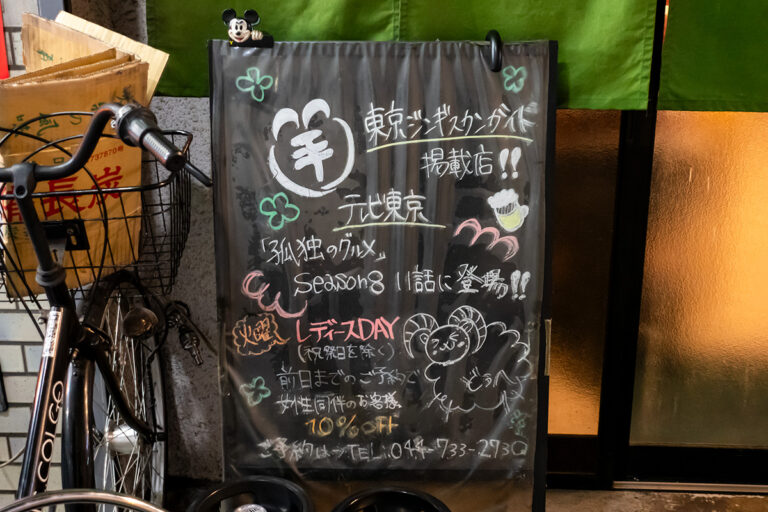 737870
長炭
羊
東京ジンギスカンガイド
掲載店!!
テレビ東京
「孤独のグルメ」
Season8 11話に登場!!
火曜 レディースDAY
(祝祭日を除く)
前日までのご予約で
女性同伴のお客様
10%OFF
ご予約は→TEL:044-733-2730